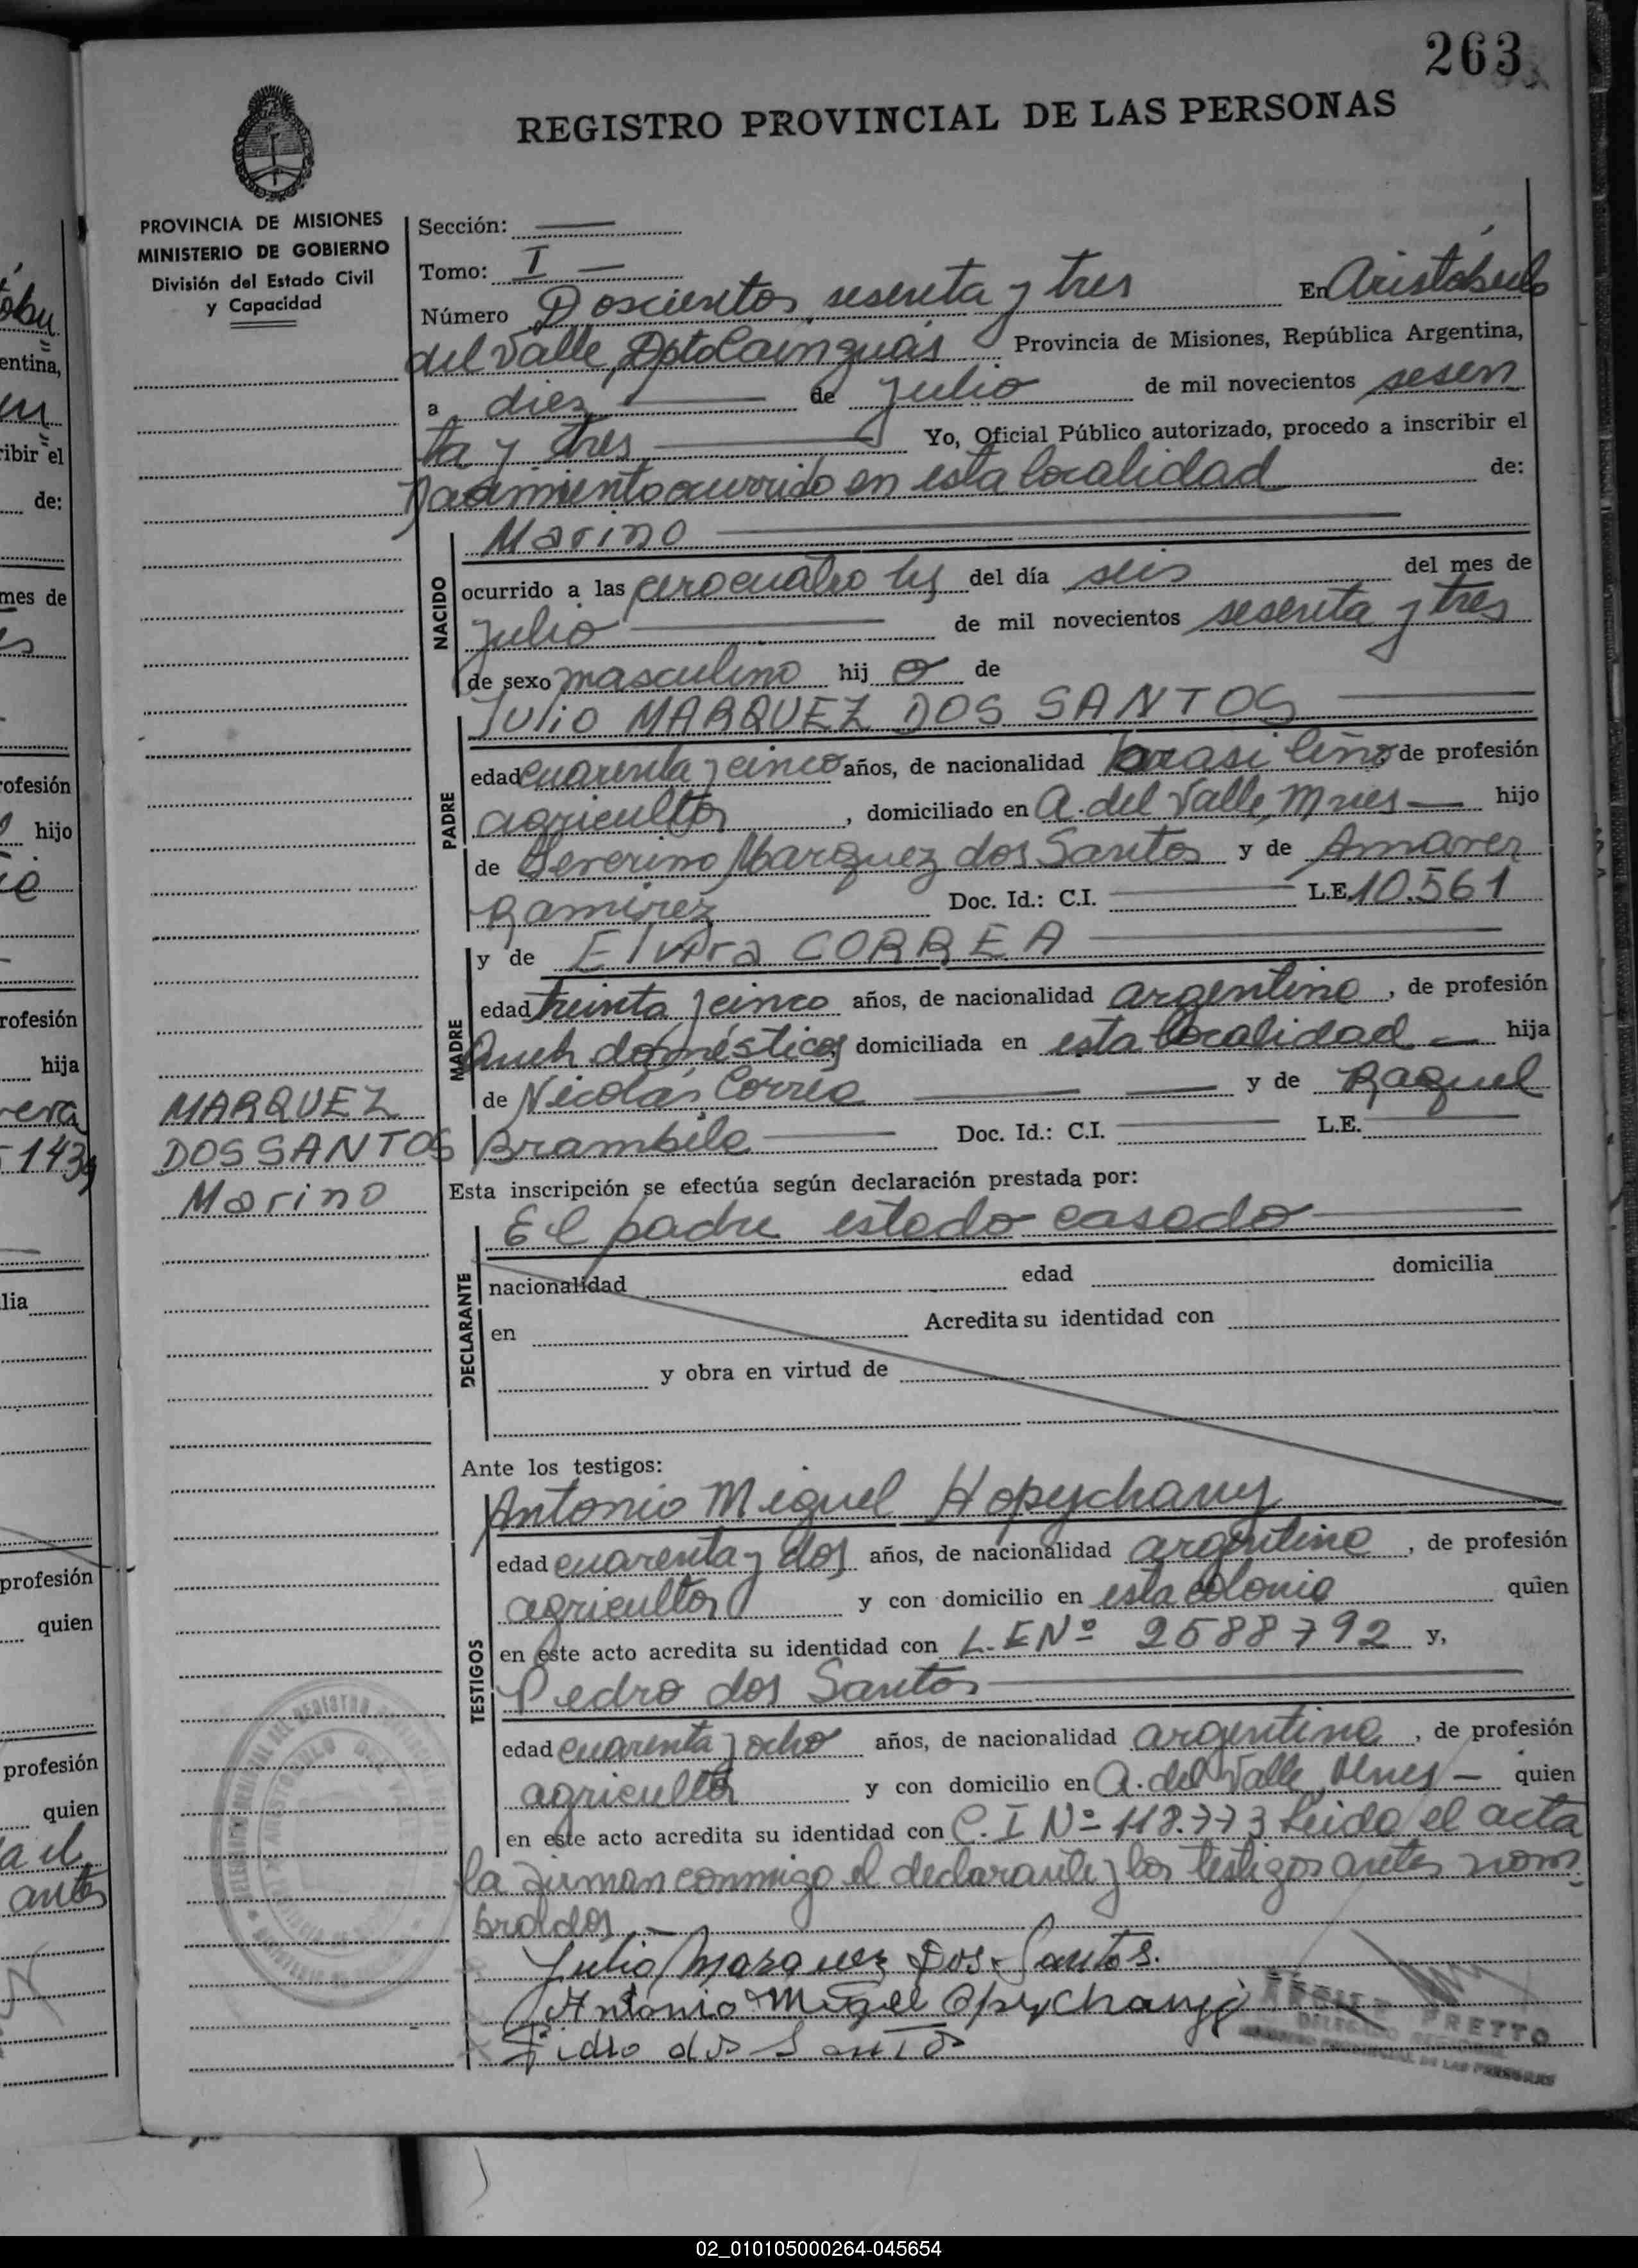 263
REGISTRO PROVINCIAL DE LAS PERSONAS
PROVINCIA DE MISIONES
MINISTERIO DE GOBIERNO
División del Estado Civil
y Capacidad
Sección:
Tomo: I
Número Doscientos, sesenta y tres En Aristóbulo
del Valle, Dpto Cainguás Provincia de Misiones, República Argentina,
a diez de julio de mil novecientos sesen
ta y tres Yo, Oficial Público autorizado, procedo a inscribir el
nacimiento ocurrido en esta localidad de:
NACIDO
Marino
ocurrido a las cero cuatro hs del día seis del mes de
julio de mil novecientos sesenta y tres
de sexo masculino hij o de
PADRE
Julio MARQUEZ DOS SANTOS
edad cuarenta y cinco años, de nacionalidad brasileño, de profesión
agricultor, domiciliado en A. del Valle, Mnes hijo
de Severino Marquez dos Santos y de
Ramirez Doc. Id.: C.I. L.E. 10.561
MADRE
y de Elvira CORREA
edad treinta y cinco años, de nacionalidad argentino, de profesión
domésticos domiciliada en esta localidad hija
de Nicolás Correa y de Raquel
Brambila Doc. Id.: C.I. L.E.
MARQUEZ
DOS SANTOS
Marino
Esta inscripción se efectúa según declaración prestada por:
DECLARANTE
El padre estado casado
nacionalidad edad domicilia
en Acredita su identidad con
y obra en virtud de
Ante los testigos:
TESTIGOS
Antonio Miguel Hopychany
edad cuarenta y dos años, de nacionalidad argentino, de profesión
agricultor y con domicilio en esta colonia quien
en este acto acredita su identidad con L. E Nº 2588792 y,
Pedro dos Santos
edad cuarenta y ocho años, de nacionalidad argentino, de profesión
agricultor y con domicilio en A. del Valle, Mnes quien
en este acto acredita su identidad con C. I Nº 118.773 Leido el acta
la firman conmigo el declarante y los testigos antes nom
brados
Julio Marquez Dos Santos.
Antonio Migel Opychany
Pidro dos Santos
PRETTO
DELEGADO
REGISTRO PROVINCIAL DE LAS PERSONAS
02_010105000264-045654